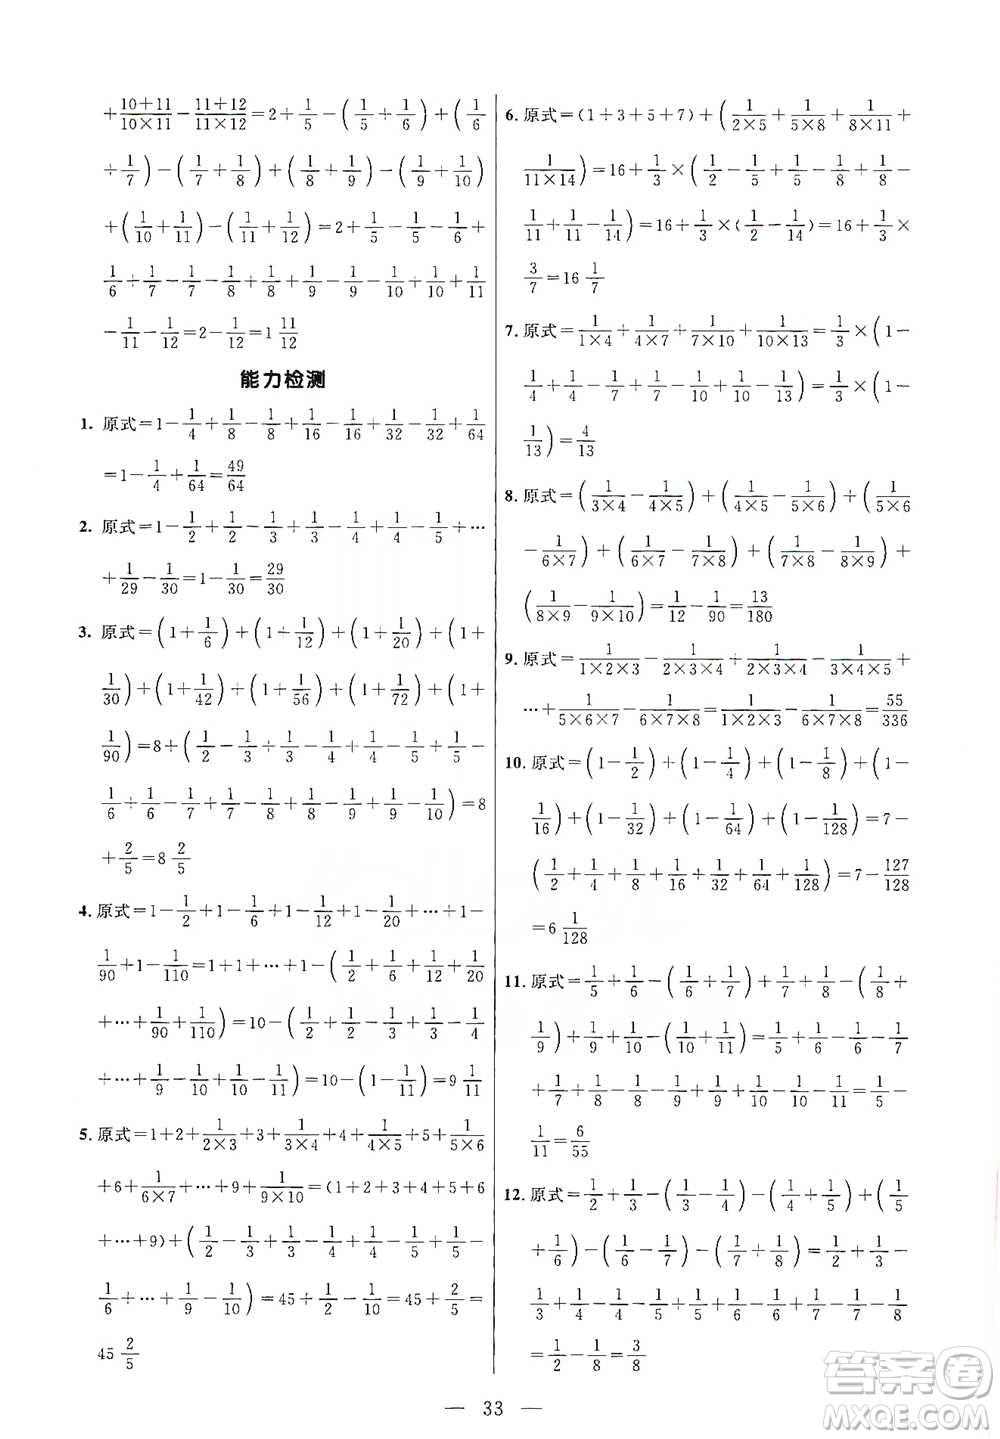 +(10+11)/(10×11)−(11+12)/(11×12)=2+1/5−(1/5÷1/6)+(1/6
÷1/7)−(1/7+1/8)+(1/8+1/9)−(1/9+1/10)
+(1/10+1/11)−(1/11+1/12)=2+1/5−1/5−1/6+
1/6÷1/7−1/7−1/8+1/8+1/9−1/9−1/10+1/10+1/11
−1/11−1/12=2−1/12=1 11/12
能力检测
1. 原式=1−1/4+1/8−1/8+1/16−1/16+1/32−1/32+1/64
=1−1/4+1/64=49/64
2. 原式=1−1/2+1/2−1/3+1/3−1/4+1/4−1/5÷…
+1/29−1/30=1−1/30=29/30
3. 原式=(1+1/6)+(1+1/12)+(1+1/20)+(1+
1/30)+(1+1/42)+(1+1/56)+(1+1/72)+(1+
1/90)=8÷(1/2−1/3÷1/3−1/4+1/4−1/5+1/5−
1/6÷1/6−1/7+1/7−1/8+1/8−1/9+1/9−1/10)=8
+2/5=8 2/5
4. 原式=1−1/2+1−1/6+1−1/12+1−1/20+…+1−
1/90+1−1/110=1+1+…+1−(1/2+1/6+1/12+1/20
+…+1/90+1/110)=10−(1/2+1/2−1/3+1/3−1/4
+…+1/9−1/10+1/10−1/11)=10−(1−1/11)=9 1/11
5. 原式=1+2+1/(2×3)+3+1/(3×4)+4+1/(4×5)+5+1/(5×6)
+6+1/(6×7)+…+9+1/(9×10)=(1+2+3+4+5+6
+…+9)+(1/2−1/3+1/3−1/4+1/4−1/5+1/5−
1/6÷…+1/9−1/10)=45+1/2−1/10=45+2/5=
45 2/5
6. 原式=(1+3+5+7)+(1/(2×5)+1/(5×8)+1/(8×11)+
1/(11×14))=16+1/3×(1/2−1/5+1/5−1/8+1/8−
1/11+1/11−1/14)=16+1/3×(1/2−1/14)=16+1/3×
3/7=16 1/7
7. 原式=1/(1×4)+1/(4×7)+1/(7×10)+1/(10×13)=1/3×(1−
1/4+1/4−1/7+1/7−1/10+1/10−1/13)=1/3×(1−
1/13)=4/13
8. 原式=(1/(3×4)−1/(4×5))+(1/(4×5)−1/(5×6))+(1/(5×6)
−1/(6×7))+(1/(6×7)−1/(7×8))+(1/(7×8)−1/(8×9))+
(1/(8×9)−1/(9×10))=1/12−1/90=13/180
9. 原式=1/(1×2×3)−1/(2×3×4)+1/(2×3×4)−1/(3×4×5)+
…+1/(5×6×7)−1/(6×7×8)=1/(1×2×3)−1/(6×7×8)=55/336
10. 原式=(1−1/2)+(1−1/4)+(1−1/8)+(1−
1/16)+(1−1/32)+(1−1/64)+(1−1/128)=7−
(1/2+1/4+1/8+1/16+1/32+1/64+1/128)=7−127/128
=6 1/128
11. 原式=1/5+1/6−(1/6+1/7)+1/7+1/8−(1/8+
1/9)+1/9+1/10−(1/10+1/11)=1/5+1/6−1/6−1/7
+1/7+1/8−1/8−1/9+1/9+1/10−1/10−1/11=1/5−
1/11=6/55
12. 原式=1/2+1/3−(1/3−1/4)−(1/4+1/5)+(1/5
+1/6)−(1/6−1/7)−(1/7+1/8)=1/2+1/3−
1/3+1/4−1/4−1/5+1/5+1/6−1/6+1/7−1/7−1/8
=1/2−1/8=3/8
— 33 —
答案圈
MXQE.COM